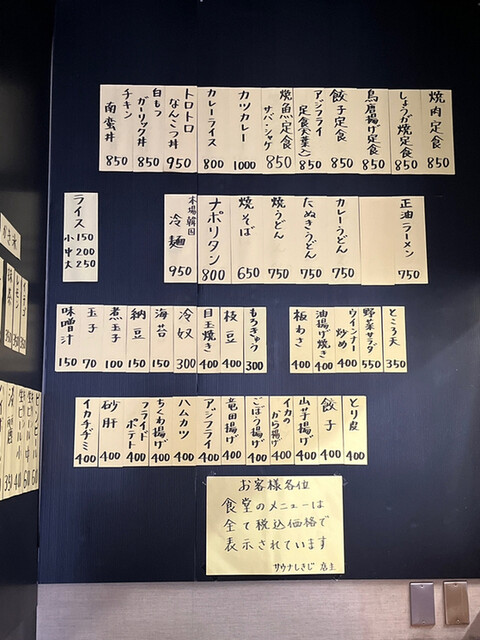 焼肉定食
850
しょうが焼定食
850
鳥唐揚げ定食
850
餃子定食
850
アジフライ
定食(天葉入)
850
焼魚定食
サバ・シャケ
850
カツカレー
1000
カレーライス
800
トロトロ
なんこつ丼
950
白もつ
ガーリック丼
850
チキン
南蛮丼
850
正油ラーメン
750
カレーうどん
750
たぬきうどん
750
焼うどん
750
焼そば
650
ナポリタン
800
本場韓国
冷麺
950
ライス
小 150
中 200
大 250
ところ天
350
野菜サラダ
550
ウインナー
炒め
400
油揚げ焼き
400
板わさ
400
もろきゅう
300
枝豆
400
目玉焼き
400
冷奴
300
海苔
150
納豆
150
煮玉子
100
玉子
70
味噌汁
150
とり皮
400
餃子
400
山芋揚げ
400
イカの
から揚げ
400
ごぼう揚げ
400
竜田揚げ
400
アジフライ
400
ハムカツ
400
ちくわ揚げ
400
フライド
ポテト
400
砂肝
400
イカチヂミ
400
お客様各位
食堂のメニューは
全て税込価格で
表示されています
サウナしきじ 店主